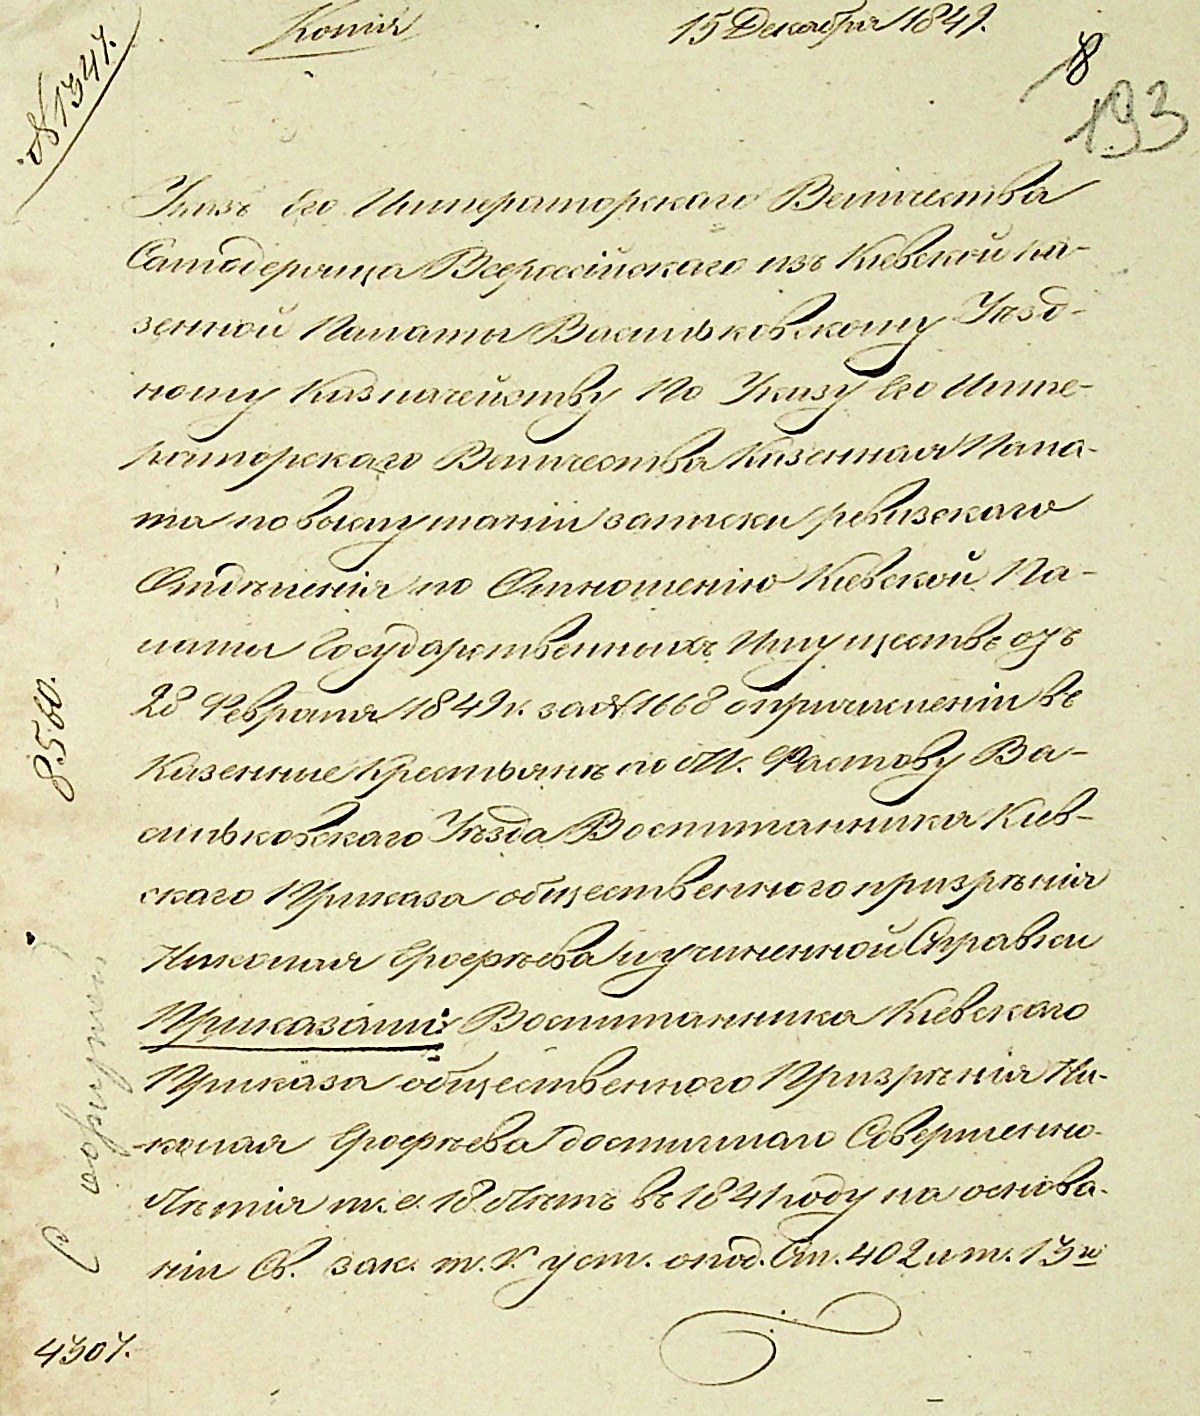 Копія
15 Декабря 1849.
№ 1347.
8
193
Указъ Его Императорскаго Величества
Самодержца Всероссійскаго изъ Кіевской ка-
зенной Палаты Васильковскому Уѣзд-
ному Казначейству По Указу Его Импе-
раторскаго Величества Казенная Пала-
та по выслушаніи записки ревизскаго
Отдѣленія по Отношенію Кіевской Па-
латы Государственныхъ Имуществъ отъ
28 Февраля 1849 г. за № 1668 о причисленіи въ
Казенные Крестьяне по М. Фастову Ва-
сильковскаго Уѣзда Воспитанника Кіев-
скаго Приказа общественнаго призрѣнія
Николая Ерофѣева и учиненной Справки
Приказали: Воспитанника Кіевскаго
Приказа общественнаго Призрѣнія Ни-
колая Ерофѣева достигшаго Совершенно-
лѣтія т. е. 18 лѣтъ въ 1841 году на основа-
ніи Св. зак. т. V. уст. о под. Ст. 402 и т. 13
8560.
4307.